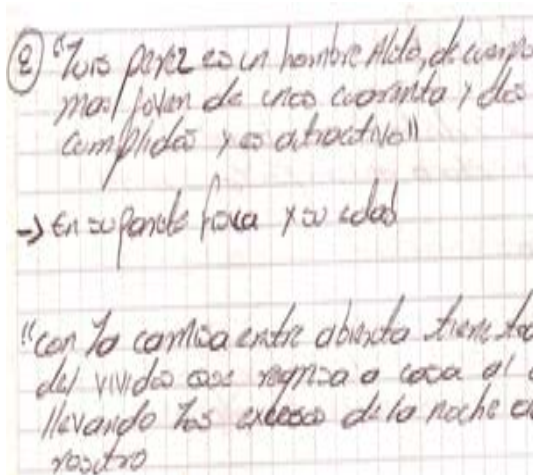 ② "Luis perez es un hombre Alto, de cuerpo
mas joven de unos cuarenta y dos
cumplidos y es atractivo"
→ En su parte fisica y su edad
"con la camisa entre abierta tiene
del vividos que regresa a casa al
llevando los excesos de la noche
rostro